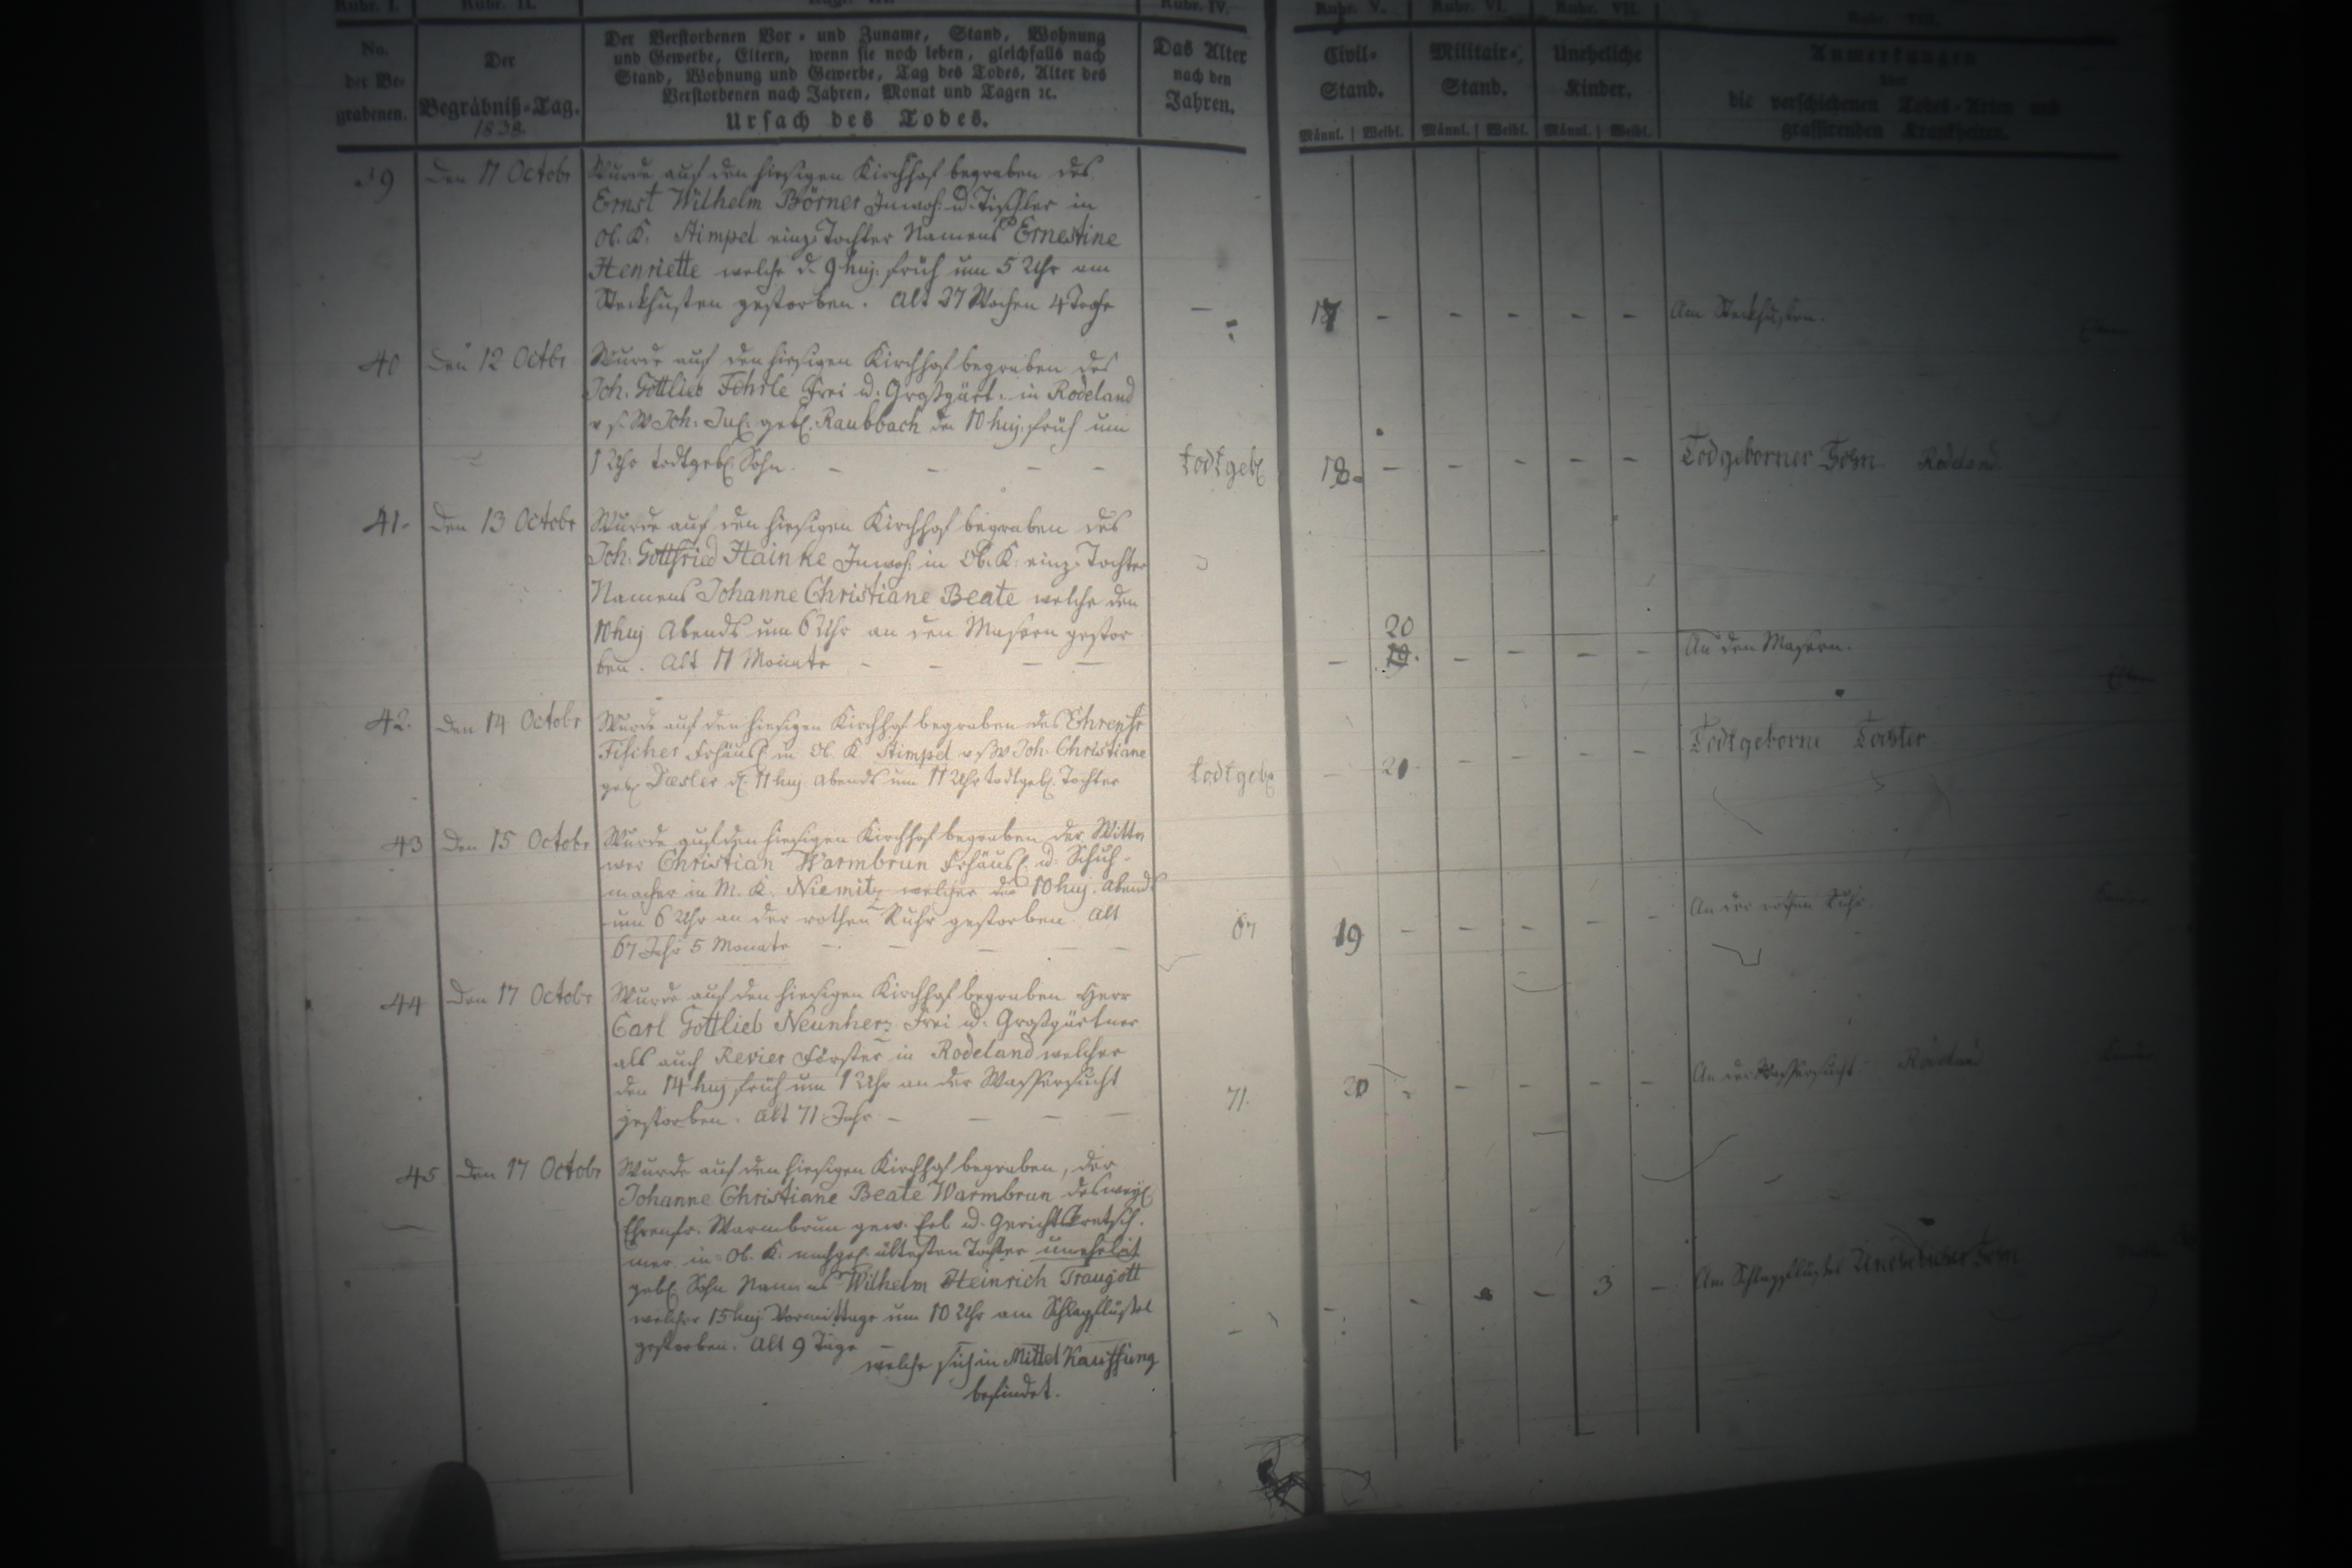 Rubr. I. Rubr. II. Rubr. IV. Rubr. V. Rubr. VI. Rubr. VII.
No.
der Be-
grabenen.
Der
Begräbniß-Tag.
1838.
Der Verstorbenen Vor- und Zuname, Stand, Wohnung
und Gewerbe, Eltern, wenn sie noch leben, gleichfalls nach
Stand, Wohnung und Gewerbe, Tag des Todes, Alter des
Verstorbenen nach Jahren, Monat und Tagen ꝛc.
Ursach des Todes.
Das Alter
nach den
Jahren.
Civil-
Stand.
Männl. | Weibl.
Militair-
Stand.
Männl. | Weibl.
Uneheliche
Kinder.
Männl. | Weibl.
Anmerkungen
über
die verschiedenen Todes-Arten und
grassirenden Krankheiten.
39 Den 11 Octobr Wurde auf den hiesigen Kirchhof begraben des
Ernst Wilhelm Börner Inwoh: u. Tischler in
Ob. K. Stimpel einz. Tochter Namens Ernestine
Henriette welche d. 9 huj. früh um 5 Uhr am
Steckhusten gestorben. Alt 27 Wochen 4 Tage — 17 - - - - - Am Steckhusten.
40 Den 12 Octbr Wurde auf den hiesigen Kirchhof begraben des
Joh. Gottlieb Frei u. Großgärt. in Rodeland
v. s. W Joh: geb. Raubbach den 10 huj. früh um
1 Uhr todtgeb. Sohn. - - - - todtgeb. 18. - - - - - Todgeborner Sohn Rodeland.
41. Den 13 Octobr Wurde auf den hiesigen Kirchhof begraben des
Joh. Gottfried Hainke Inwoh: in Ob. K. einz. Tochter
Namens Johanne Christiane Beate welche den
10 huj Abends um 6 Uhr an den Masern gestor-
ben. Alt 11 Monate - - - - - 20 - - - - An den Masern.
42. Den 14 Octobr Wurde auf den hiesigen Kirchhof begraben des Ehrenfr
Fischer Frhäusl. in Ob. K Stimpel v s W Joh. Christiane
geb. d. 11 huj Abends um 11 Uhr todtgeb. Tochter todtgeb. - 21 - - - - Todtgeborne Tochter
43 Den 15 Octobr Wurde auf den hiesigen Kirchhof begraben der Wittw
wer Christian Warmbrun Frhäusl. u. Schuh-
macher in M. K. Niemitz welcher den 10 huj. Abends
um 6 Uhr an der rothen Ruhr gestorben. Alt
67 Jahr 5 Monate - - - - 67 19 - - - - - An der rothen Ruhr.
44 Den 17 Octobr Wurde auf den hiesigen Kirchhof begraben Herr
Carl Gottlieb Neunherz Frei u. Großgärtner
als auch Revier Förster in Rodeland welcher
den 14 huj früh um 1 Uhr an der Wassersucht
gestorben. Alt 71 Jahr - - - - 71. 20 - - - - - An der Wassersucht Rodeland
45 Den 17 Octobr Wurde auf den hiesigen Kirchhof begraben, der
Johanne Christiane Beate Warmbrun des weyl.
Ehrenfr. Warmbrun gew. Erb u. Gerichtskretsch-
mer in Ob. K. nachgel. ältesten Tochter unehelich
geb. Sohn Namens Wilhelm Heinrich Traugott
welcher 15 huj Vormittags um 10 Uhr am Schlagflußel
gestorben. Alt 9 Tage - - - - - - 3 - Am Schlagflußel Unehelicher Sohn
welche sich in Mittel Kauffung
befindet.